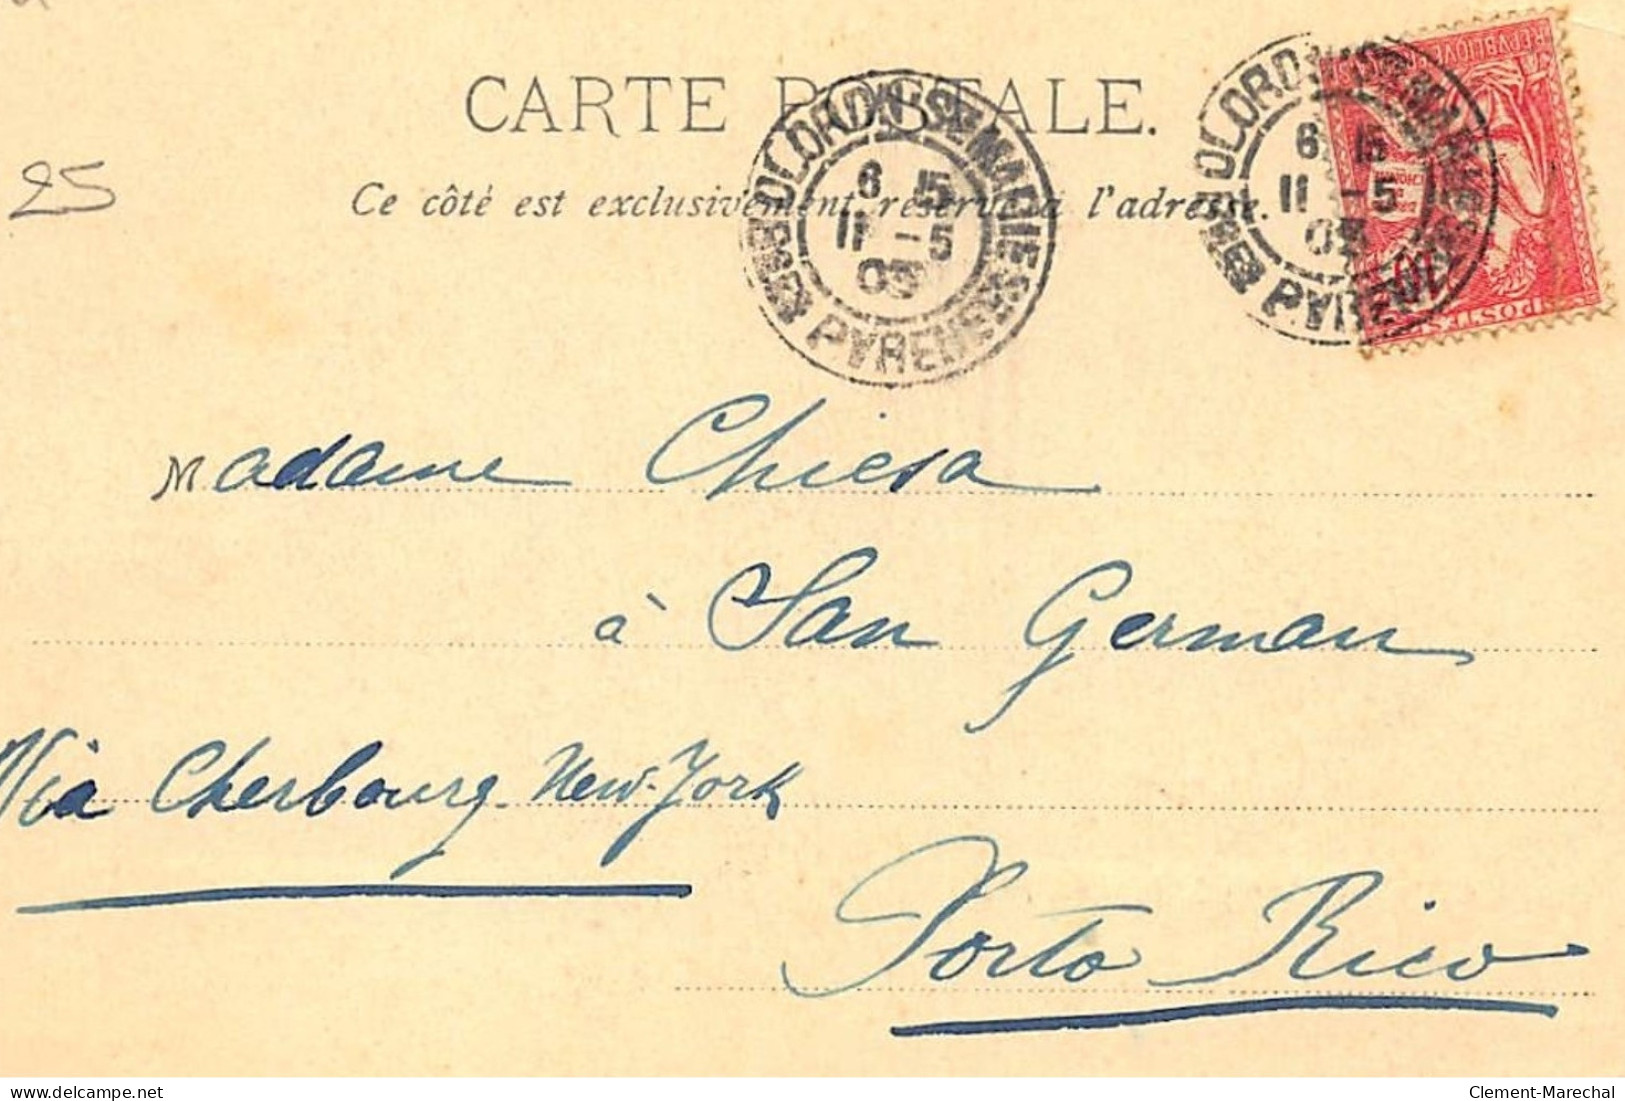 CARTE POSTALE.
25
Ce côté est exclusivement réservé à l'adresse.
OLORON-Ste MARIE
6 15
11 -5
03
OLORON-Ste MARIE
6 15
11 -5
03
REPUBLIQUE
10
POSTES
Madame Chiesa
à San German
Via Cherbourg-New-York
Porto Rico
delcampe.net
Clement-Marechal